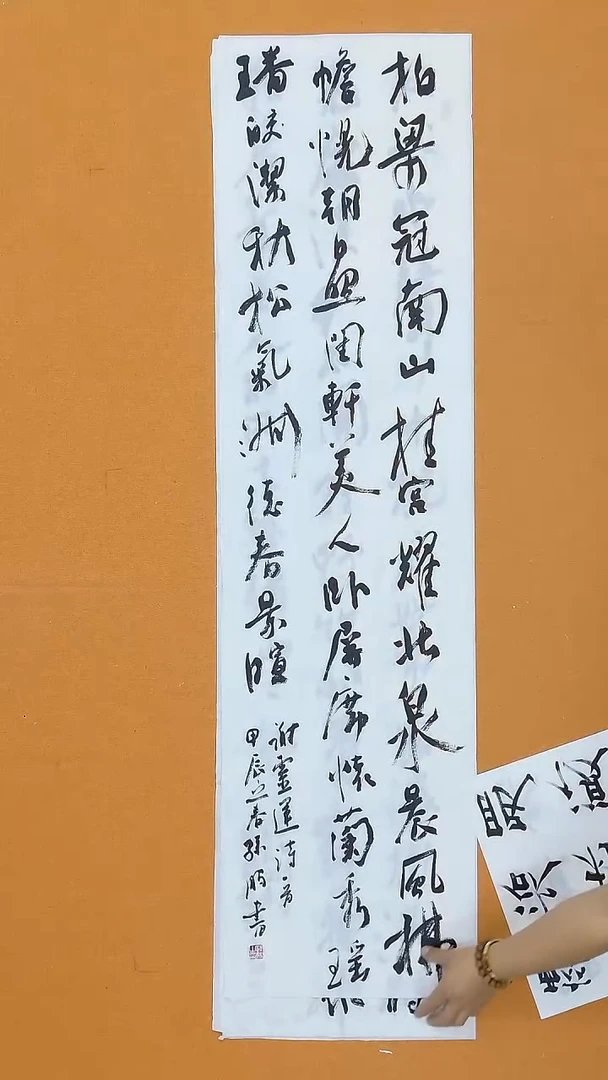 柏梁冠南山桂宫耀北泉晨風拂
幨幌朝日照閨軒美人卧屏席懷蘭秀瑶
璠皎潔秋松氣淑德春景暄
谢靈運诗一首
甲辰之春孫書